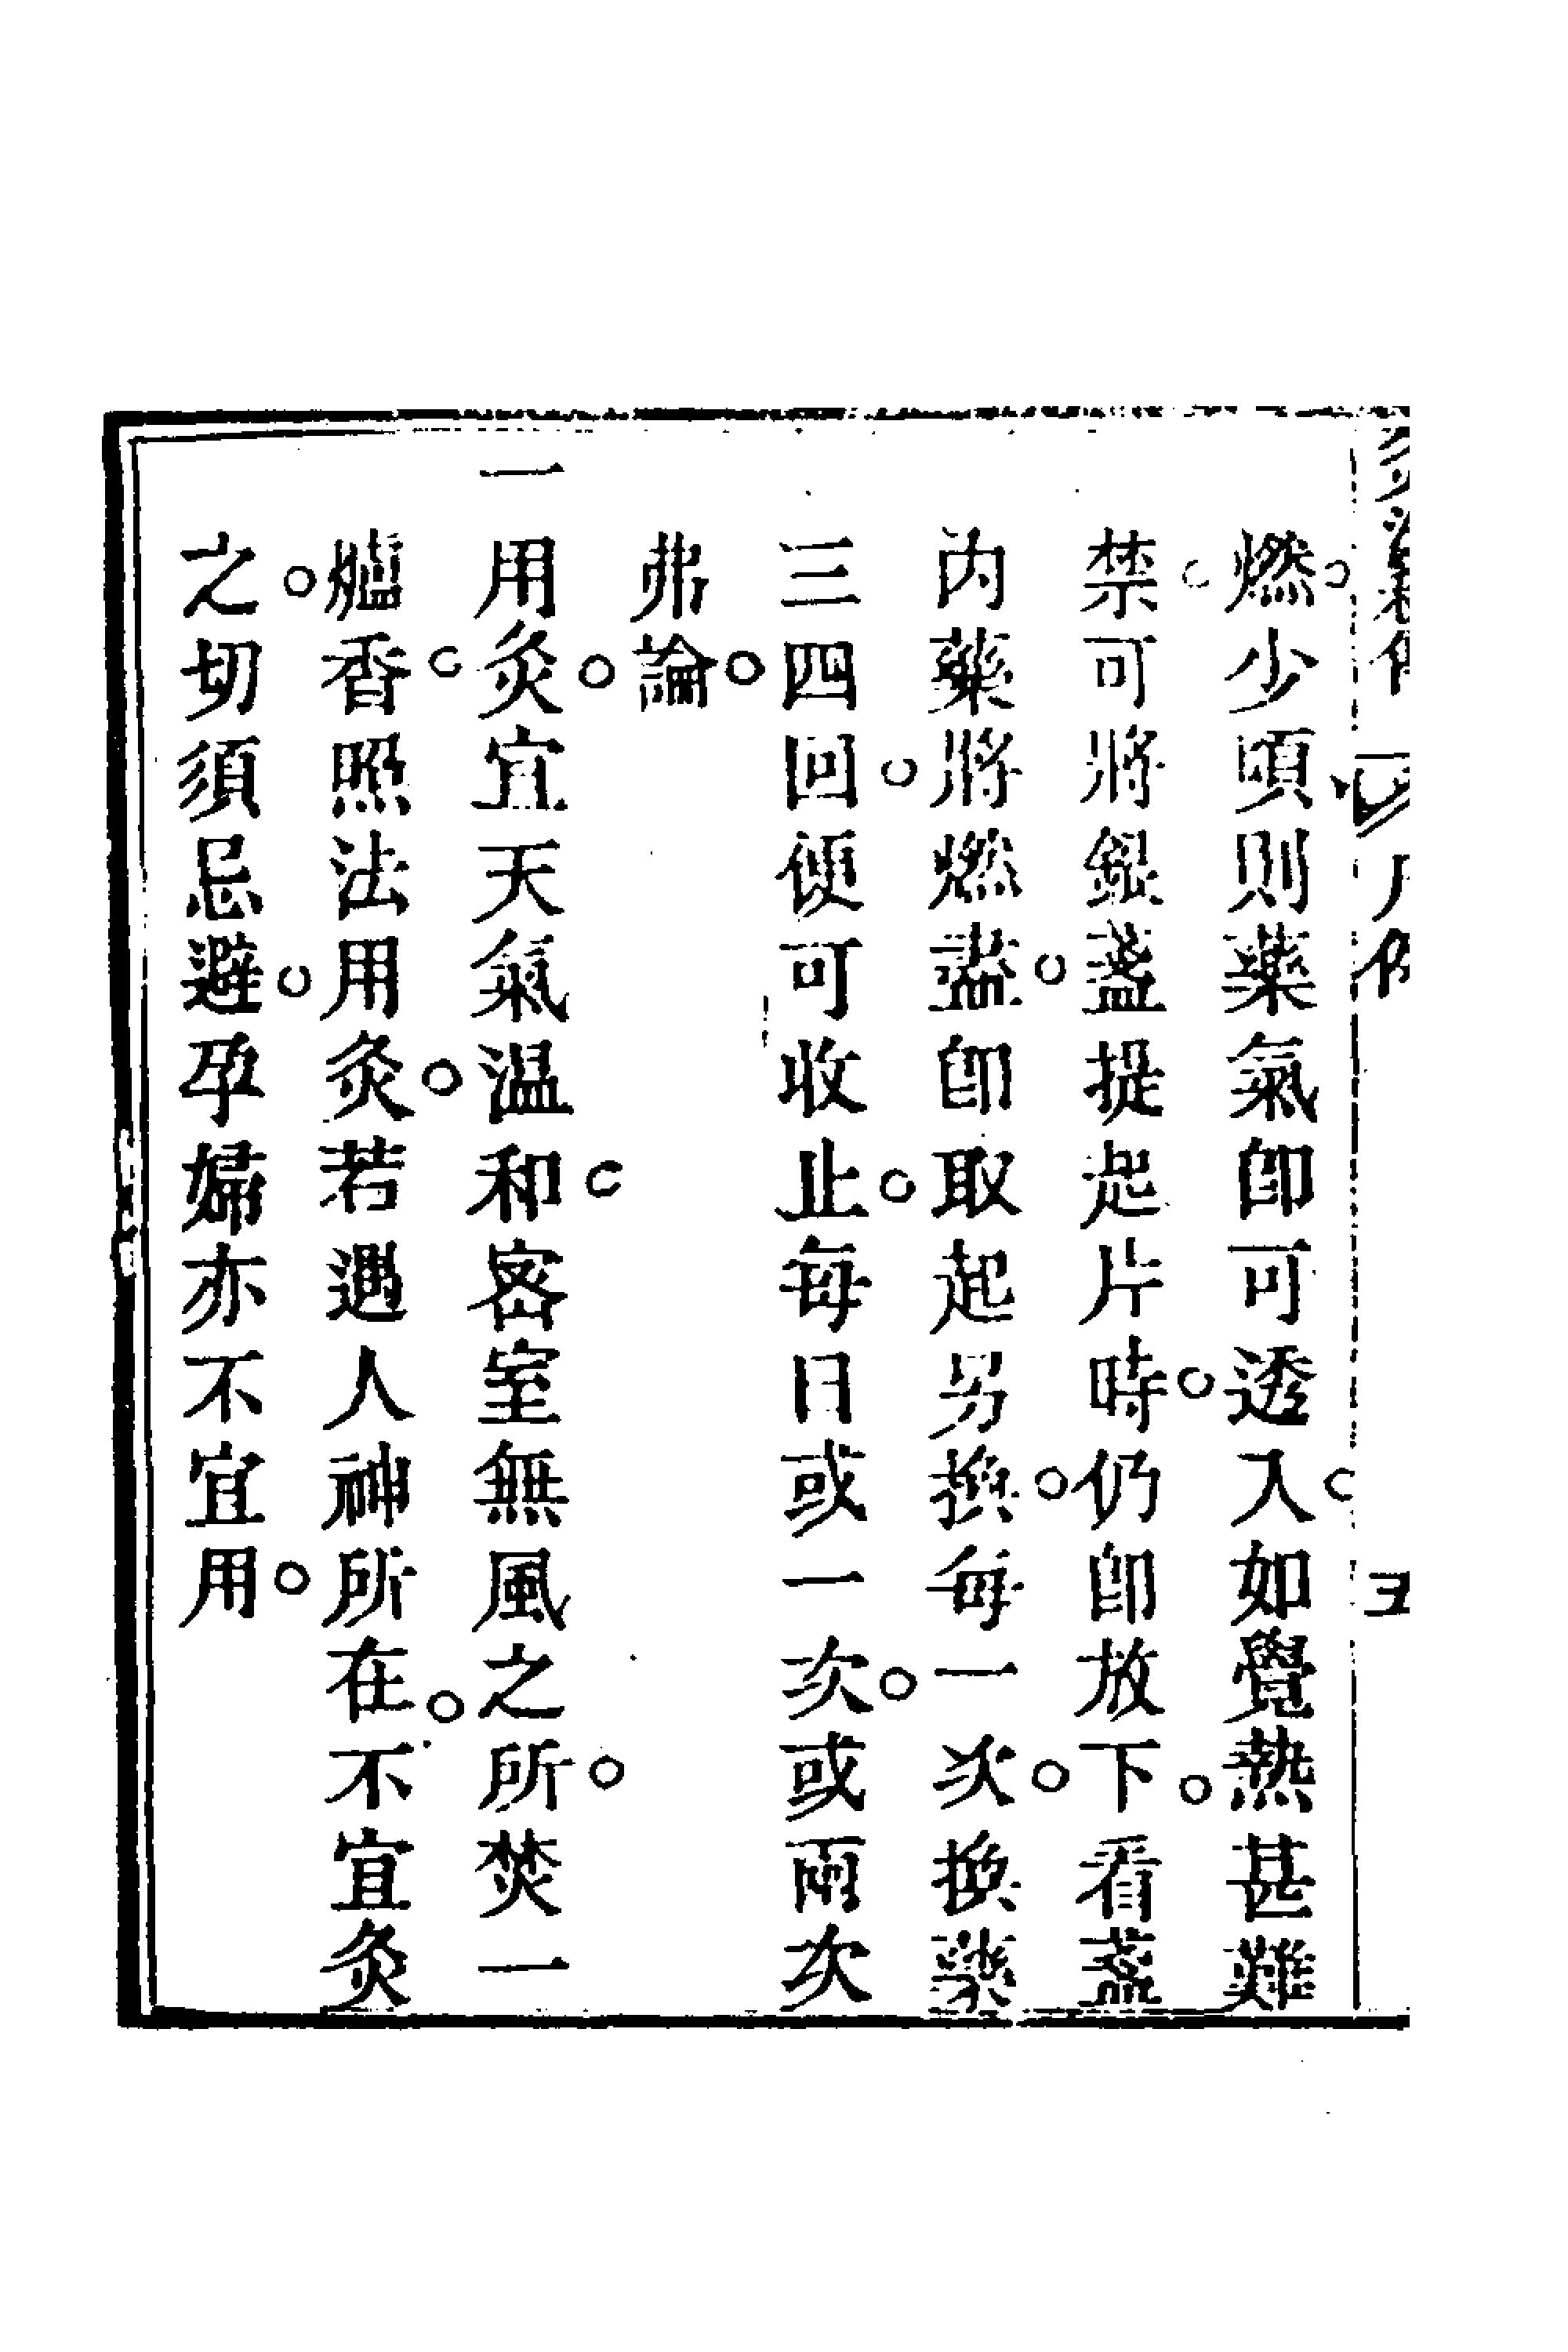 燃少頃則藥氣卽可透入如覺熱甚難
禁可將銀盞提起片時仍卽放下看盞
內藥將燃盡卽取起另換每一次換藥
三四回便可收止每日或一次或兩次
弗論
一用灸宜天氣温和密室無風之所焚一
爐香照法用灸若遇人神所在不宜灸
之切須忌避孕婦亦不宜用